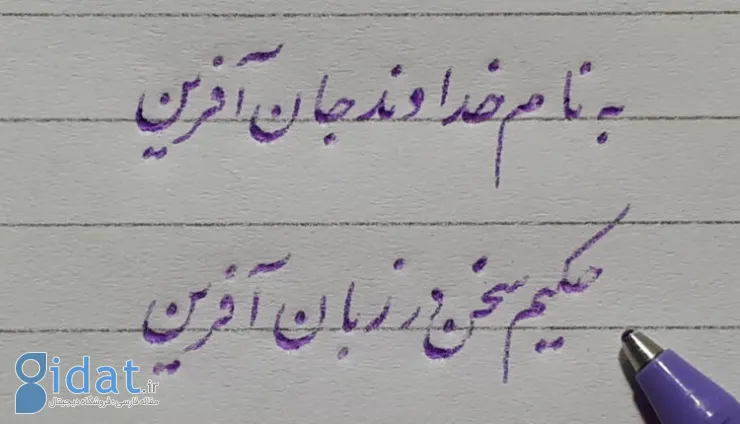 به نام خداوند جان آفرین
حکیم سخن در زبان آفرین
gidat.ir
مقاله فارسی، فروشگاه دیجیتال